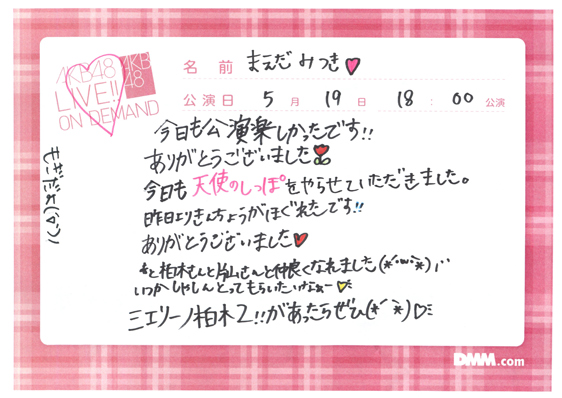 AKB48
LIVE!!
ON DEMAND
AKB
48
名前 まえだ みつき
公演日 5月 19日 18:00 公演
今日も公演楽しかったです!!
ありがとうございました
今日も 天使のしっぽをやらせていただきました。
昨日よりきんちょうがほぐれたです!!
ありがとうございました
あと柏木さんと片山さんと仲良くなれました
いつかしゃしんとってもらいたいなぁー
ミエリーノ柏木Z!!があったらぜひ
DMM.com